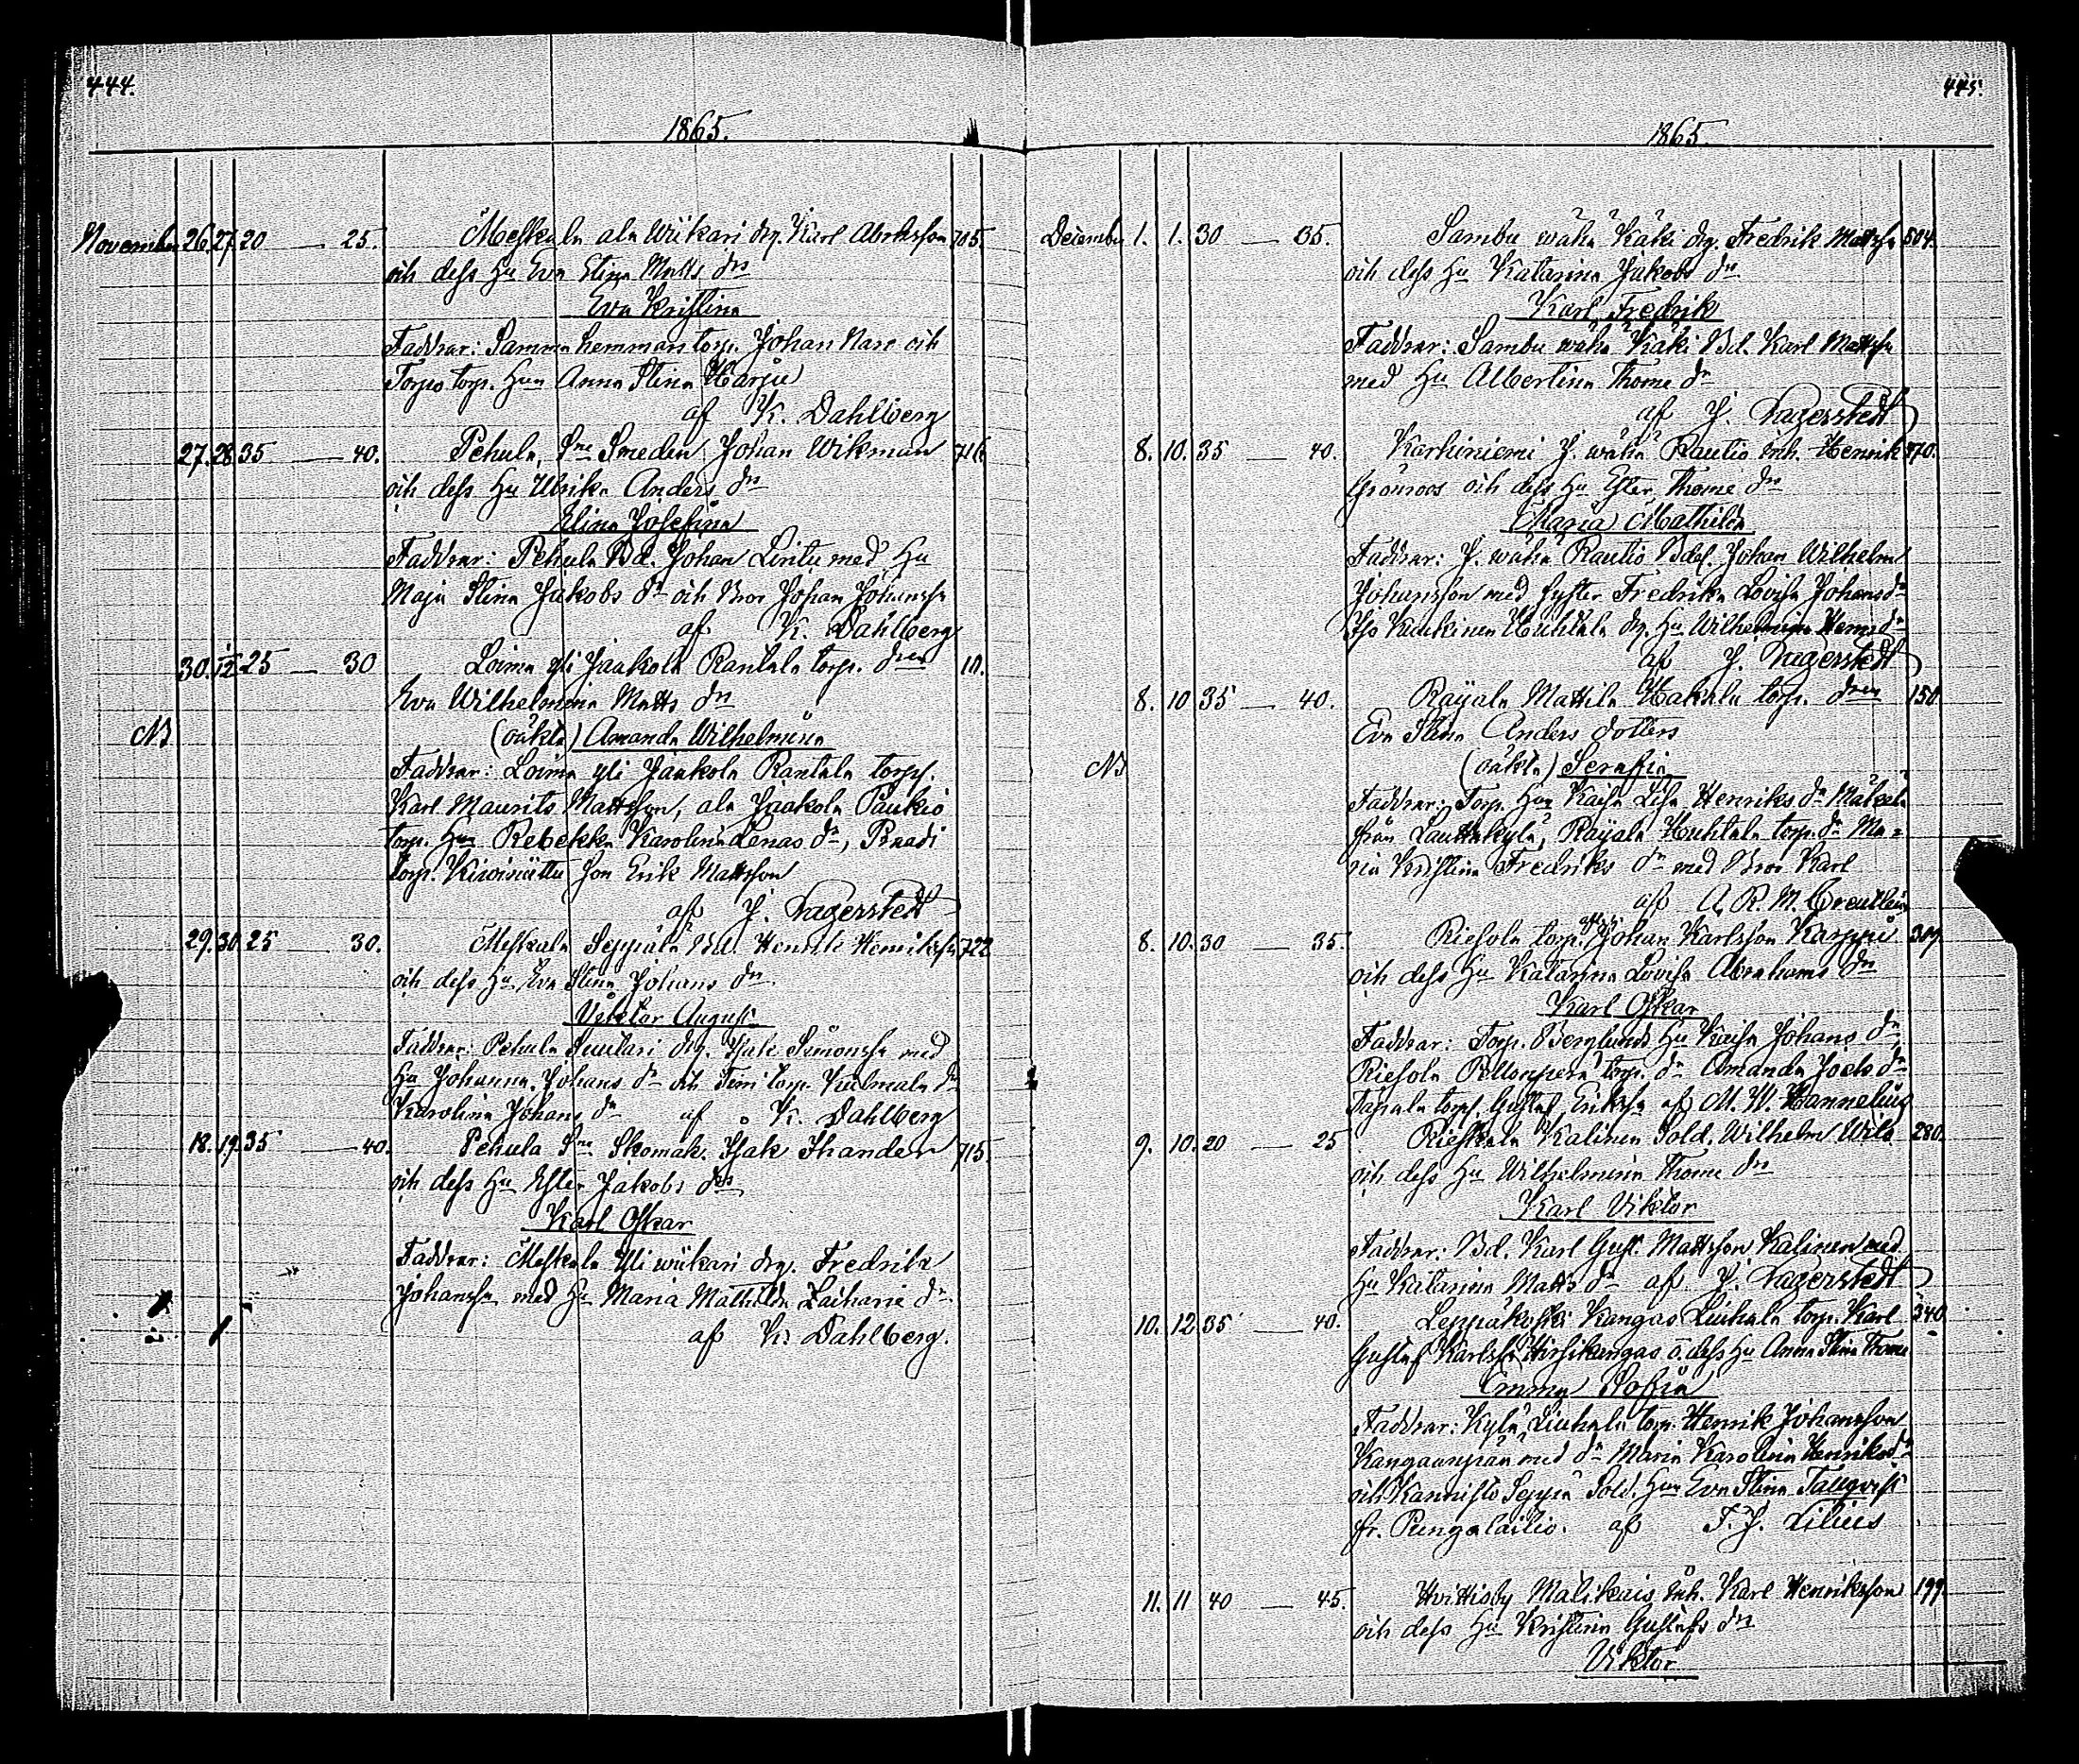 444.
1865.
November 26. 27. 20 — 25. Meskala ala Wiikari drg. Karl Abrahsson 705.
och dess Hu Eva Stina Matts dr
Eva Kristina
Faddrar: Samma hemmans torp. Johan Nase och
Torps torp. Hun Anna Stina Harju
af K. Dahlberg
27. 28. 35 — 40. Pehula, Sne Smeden Johan Wikman 716.
och dess Hu Ulrika Anders dr
Elina Josefina
Faddrar: Pehula Bd. Johan Lintu med Hu
Maja Stina Jakobs dr och Bror Johan Johanssn
af K. Dahlberg
30. 1/12 25 — 30 Loima yli Jaakola Rantala torp. dren 10.
Eva Wilhelmina Matts dr
NB (oäkta) Amanda Wilhelmina
Faddrar: Loima yli Jaakola Rantala torps.
Karl Maurits Mattsson, ala Jaakola Paukio
torp. Hun Rebekka Karolina Lenas dr,
torp. son Erik Mattsson
af J. Lagerstedt
29. 30. 25 — 30. Meskala Seppälä Bd. Henrik Henrikssn 722
och dess Hu Eva Stina Johans dr.
Viktor August
Faddrar: Pehula drg. Isak Simonssn med
Hu Johanna Johans dr och torp. dr
Karolina Johans dr af K. Dahlberg
18. 19. 35 — 40. Pehula Sne Skomak. Isak Ihander 715.
och dess Hu Ester Jakobs dr
Karl Oskar
Faddrar: Meskala Yli wiikari drg. Fredrik
Johanssn med Hu Maria Mathilda Zacharie dr
af K. Dahlberg.
445.
1865.
December 1. 1. 30 — 35. Sambu wähä Käki drg. Fredrik Mattssn 504.
och dess Hu Katarina Jakobs dr
Karl Fredrik
Faddrar: Sambu wähä Käki Bd. Karl Mattssn
med Hu Albertina Thome dr
af J. Lagerstedt
8. 10. 35 — 40. Karhiniemi J. wähä Rautio inh. Henrik 770.
Grönroos och dess Hu Ester Thome dr
Maria Mathilda
Faddrar: J. wähä Rautio Bds. Johan Wilhelm
Johansson med syster Fredrika Lovisa Johans dr
Iso Kaukinen Huhtala drg. Hu Wilhelmina Henr dr
af J. Lagerstedt
8. 10 35 — 40. Raijala Mattila Hakala torp. dren 150
Eva Stina Anders dotters
NB (oäkta) Serafia
Faddrar: Torp. Hun Kaisa Lisa Henriks dr Mäkelä
från Lauttakylä, Raijala Huhtala torp. dr Ma=
ria Kristina Fredriks dr med Bror Karl
af A. R. M. Creutlein
8. 10. 30 — 35. Riesola torp. Johan Karlsson Karppi
och dess Hu Katarina Lovisa Abrahams dr
Karl Oskar
Faddrar: Torp. Berglunds Hu Kaisa Johans dr,
Riesola torp. dr Amanda Jochs dr
torps. Gustaf Erikssn af M. W. Hannelius
9. 10. 20 — 25 Rieskala Kalinen Sold. Wilhelm Wils 280.
och dess Hu Wilhelmina Thome dr
Karl Viktor
Faddrar: Bd. Karl Gust. Mattsson Kalinen med
Hu Katarina Matts dr af J. Lagerstedt
10. 12. 35 — 40. Leppäkoski Kangas Liuhala torp. Karl 340
Gustaf Karlssn Hirsikangas o. dess Hu Anna Stina Thome
Emma Sofia
Faddrar: Kylä Liuhala torp. Henrik Johansson
Kangaanpää med dr Maria Karolina Henriks dr
och Kannisto Seppä Sold. Hun Eva Stina Tallqvist
fr. Pungalaitio. af F. J. Lilius
11. 11 40 — 45. Hvittisby Mälikäis inh. Karl Henriksson 199
och dess Hu Kristina Gustafs dr
Viktor